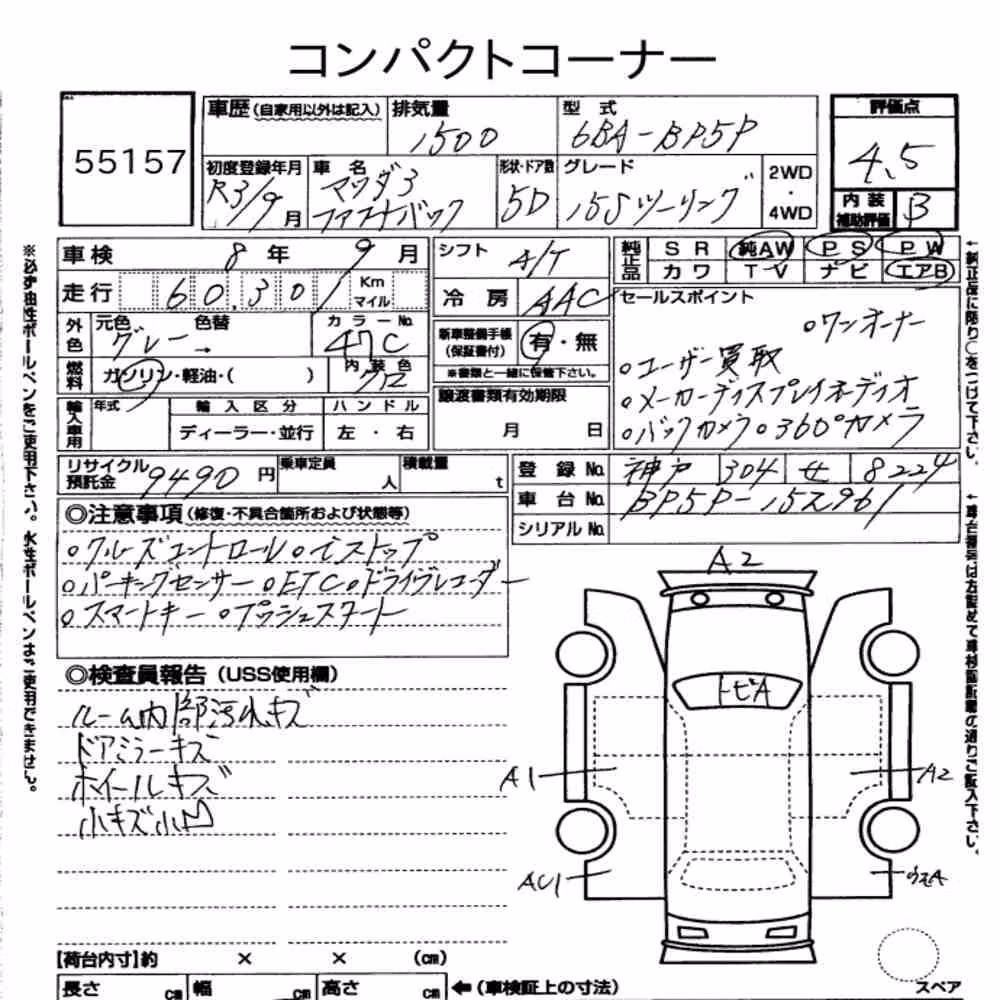 コンパクトコーナー
55157
車歴(自家用以外は記入) 排気量 1500 型式 6BA-BP5P 評価点 4.5
初度登録年月 R3/9月 車名 マツダ3 ファストバック 形状・ドア数 5D グレード 15Sツーリング 2WD・4WD 内装補助評価 B
車検 8年 9月 シフト A/T 純正品 SR 純AW PS PW
カワ TV ナビ エアB
走行 60,301 Km マイル 冷房 AAC セールスポイント
外色 元色 グレー→ 色替 カラーNo. 47C 新車整備手帳(保証書付) 有・無
※書類と一緒に保管下さい。
燃料 ガソリン・軽油・( ) 内装色 クロ
輸入車用 年式 輸入区分 ハンドル
ディーラー・並行 左・右
譲渡書類有効期限 月 日
。ワンオーナー
。ユーザー買取
。メーカーディスプレイオーディオ
。バックカメラ。360°カメラ
リサイクル預託金 9490円 乗車定員 人 積載量 t
登録No. 神戸 304 せ 8224
車台No. BP5P-152961
シリアルNo.
◎注意事項(修復・不具合箇所および状態等)
。クルーズコントロール。iストップ
。パーキングセンサー 。ETC。ドライブレコーダー
。スマートキー 。プッシュスタート
◎検査員報告(USS使用欄)
ルーム内部汚れキズ
ドアミラーキズ
ホイールキズ
小キズ小凹
A2
トビA
A1
A2
AU1
スペア
【荷台内寸】約 × × (cm)
長さ cm 幅 cm 高さ cm ←(車検証上の寸法)
※必ず油性ボールペンをご使用下さい。水性ボールペンはご使用できません。
←純正品に限り○をつけて下さい。